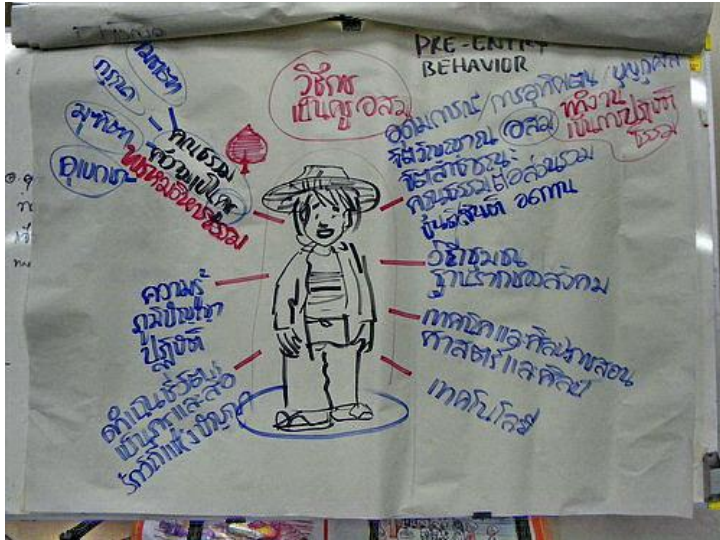 PRE-ENTRY
BEHAVIOR
วิธีการ
เป็นครู อสม
เมตตา
กรุณา
มุทิตา
อุเบกขา
คุณธรรม
ความเป็นครู
พรหมวิหารธรรม
อุดมการณ์/การอุทิศตน/บุญกุศล
จิตวิญญาณ อสม
ทำงาน
เป็นการปฏิบัติ
ธรรม
จิตสาธารณะ
คุณธรรมต่อส่วนรวม
ขันติ อดทน
วิถีชุมชน
ฐานรากของสังคม
เทคนิคและศิลปการสอน
ศาสตร์และศิลป์
เทคโนโลยี
ความรู้
ภูมิปัญญา
ปฏิบัติ
ดำเนินชีวิตเป็น
เป็นครูและสื่อ